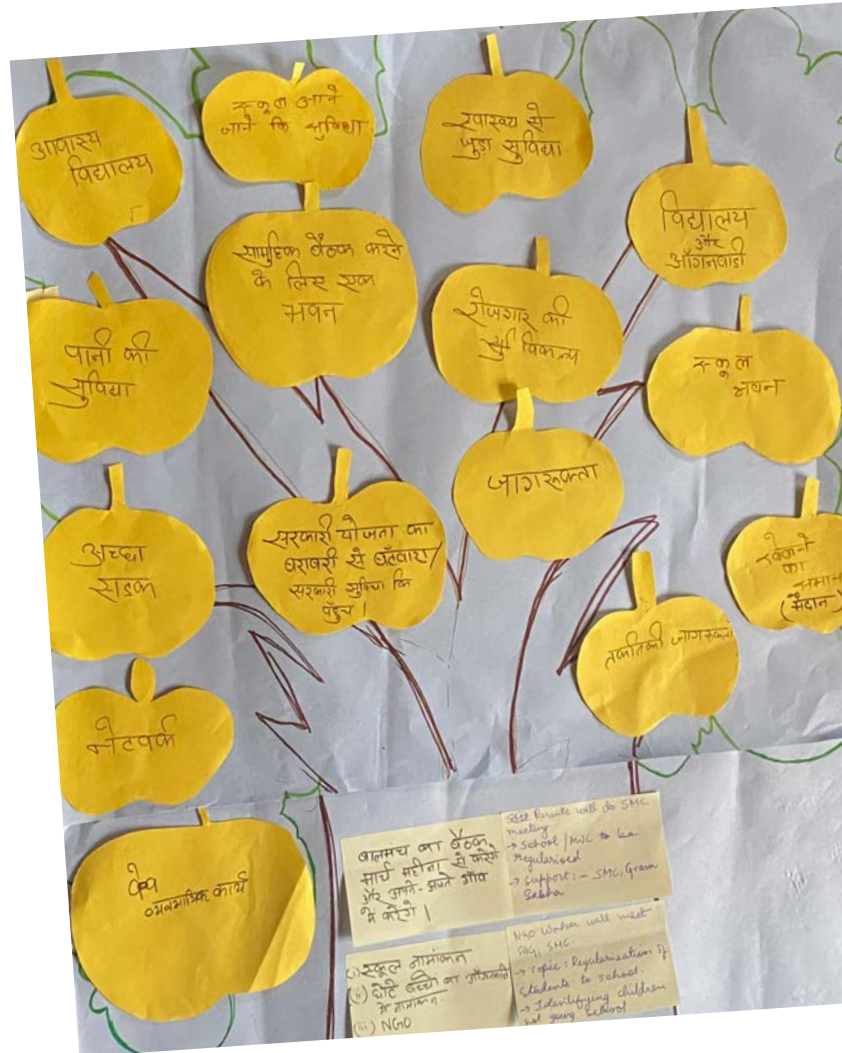 आवास्य
विद्यालय
स्कूल आने
जाने कि सुविधा
स्वास्थ्य से
जुड़ा सुविधा
विद्यालय
और
आँगनवाडी
सामुहिक बैठक करने
के लिए एक
भवन
रोजगार की
विकल्प
पानी की
सुविधा
स्कूल
भवन
जागरूकता
अच्छा
सडक
सरकारी योजना का
बराबरी से बँटवारा/
सरकारी सुविधा कि
पहुँच ।
का
समान
(मैदान)
तकनिकी जागरूकता
नेटवर्क
कार्य
बालमंच का बैठक
मार्च महीना से करेंगे
और अपने-अपने गाँव
में करेंगे ।
Parents will do SMC
meeting
→ School / AWC to be
regularised
→ Support:- SMC, Gram
Sabha
(i) स्कूल नामांकन
(ii) छोटे बच्चों का आँगनबाडी
में नामांकन.
(iii) NGO
NGO Worker will meet
SMC
→ Topic: Regularisation of
Students to school.
→ Identifying children
not going school